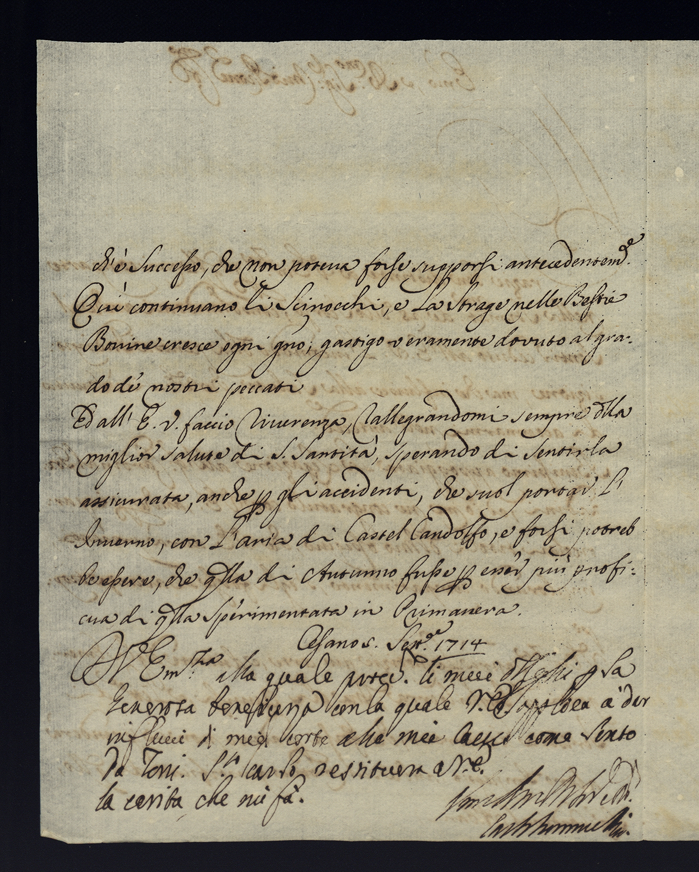 ch'è Successo, che non poteva forse supporsi antecedentem.e
Quì continuano li Scirocchi, e La Strage nelle Bestie
Bovine cresce ogni gno; gastigo veramente dovuto al gra-
do de nostri peccati
Ed all' E. V. faccio riverenza, rallegrandomi sempre della
miglior salute di S. Santità, sperando di sentirla
assicurata, anche p gli accidenti, che suol portar L'
Inverno, con L'aria di Castel Gandolfo, e forsi potreb
be essere, che qlla di Autunno fusse p esser più profi-
cua di qlla sperimentata in Primavera.
Cesano 5. Sett.e 1714
V.a Em.za alla quale li miei p la
generosa con la quale V.E. a dar
alle mie come sento
da Toni. S. Carlo restituerà a V.E.
la carità, che mi fà.